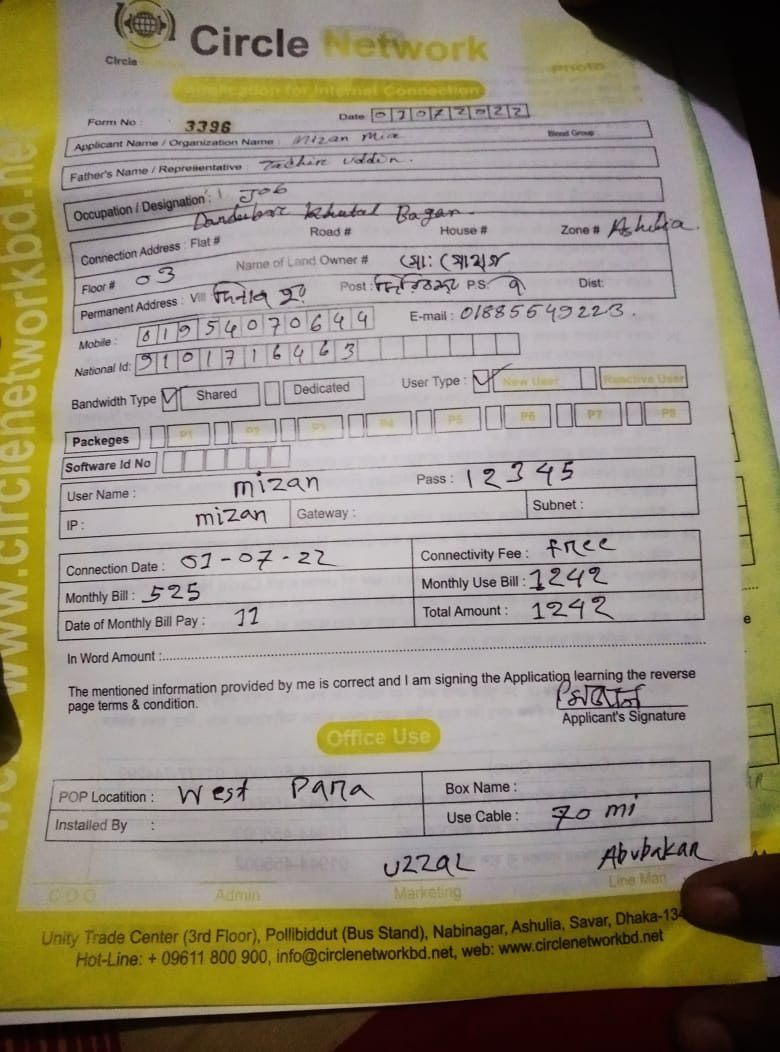 Circle Network
Circle
PHOTO
Application for Internet Connection
Form No : 3396 Date 01072022
Applicant Name / Organization Name : Mizan Mia Blood Group
Father's Name / Representative : Uddin.
Occupation / Designation : Job
Bagan
Connection Address : Flat # Road # House # Zone # Ashulia.
Floor # 03 Name of Land Owner # মো:
Permanent Address : Vill Post : P.S. Dist:
Mobile : 01954070644 E-mail : 01885549223.
National Id: 9101716463
Bandwidth Type Shared Dedicated User Type : New User Reactive User
Packeges P1 P2 P3 P4 P5 P6 P7 P8
Software Id No
User Name : mizan Pass : 12345
IP : mizan Gateway : Subnet :
Connection Date : 01-07-22 Connectivity Fee : free
Monthly Bill : 525 Monthly Use Bill : 1242
Date of Monthly Bill Pay : 11 Total Amount : 1242
In Word Amount :
The mentioned information provided by me is correct and I am signing the Application learning the reverse
page terms & condition.
Applicant's Signature
Office Use
POP Locatition : West Para Box Name :
Installed By : Use Cable : 70 mi
uzzal Abubakar
C.O.O Admin Marketing Line Man
Unity Trade Center (3rd Floor), Pollibiddut (Bus Stand), Nabinagar, Ashulia, Savar, Dhaka-134
Hot-Line: + 09611 800 900, info@circlenetworkbd.net, web: www.circlenetworkbd.net
www.circlenetworkbd.net